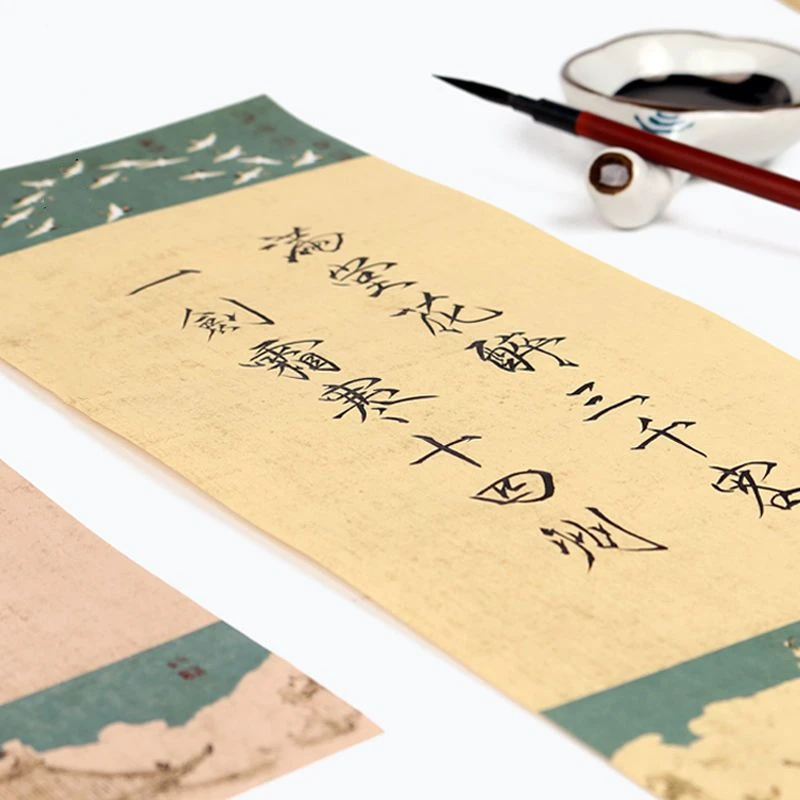 滿堂花醉三千客
一劍霜寒十四州